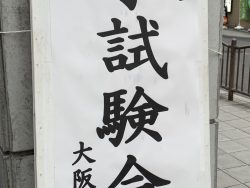 試験会
大阪